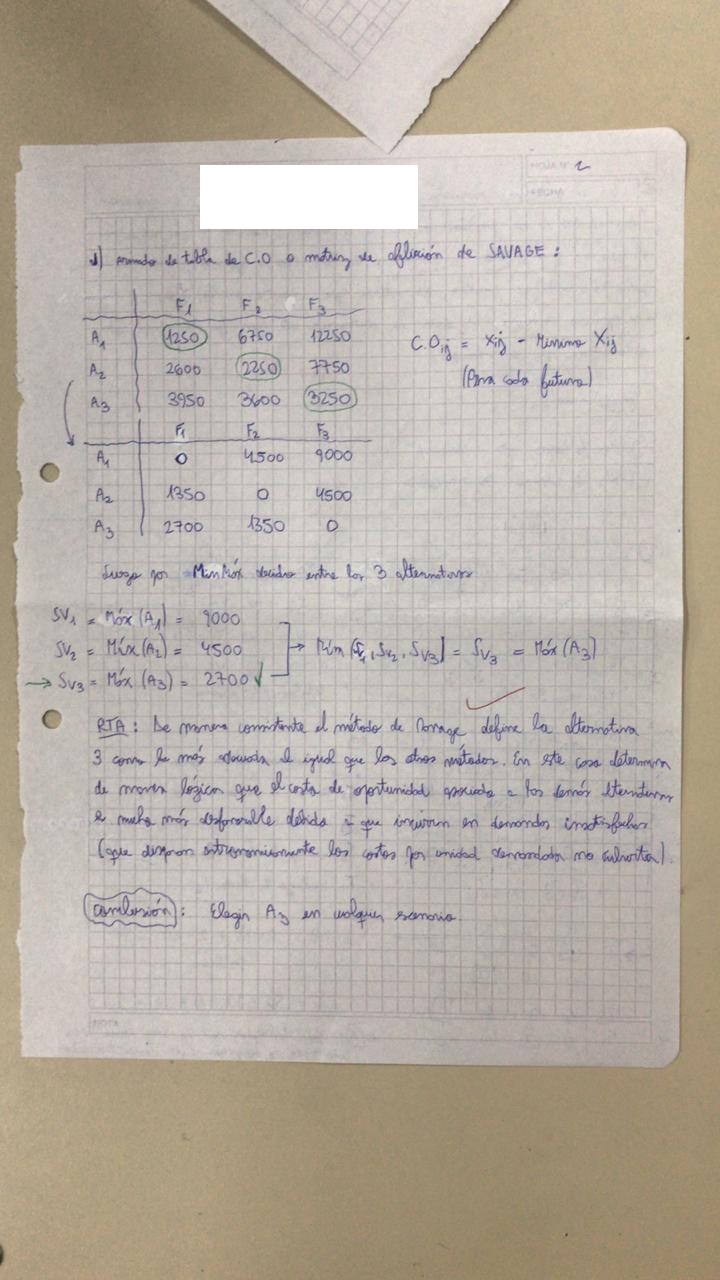 HOJA Nº 2
FECHA
d) Armado de tabla de C.O o matriz de aflicción de SAVAGE:
F1 F2 F3
A1 1250 6750 12250
A2 2600 2250 7750
A3 3950 3600 3250
C.Oij = Xij - Mínimo Xij
(Para cada futuro)
F1 F2 F3
A1 0 4500 9000
A2 1350 0 4500
A3 2700 1350 0
Luego por MinMáx decido entre las 3 alternativas
SV1 = Máx (A1) = 9000
SV2 = Máx (A2) = 4500
→ SV3 = Máx (A3) = 2700 ✓
→ Mín [SV1, SV2, SV3] = SV3 = Máx (A3)
RTA: De manera consistente el método de Savage define la alternativa
3 como la más adecuada al igual que los otros métodos. En este caso determina
de manera lógica que el costo de oportunidad asociado a las demás alternativas
es mucho más desfavorable debido a que incurren en demandas insatisfechas
(que disparan astronómicamente los costos por unidad demandada no cubierta).
Conclusión: Elegir A3 en cualquier escenario.